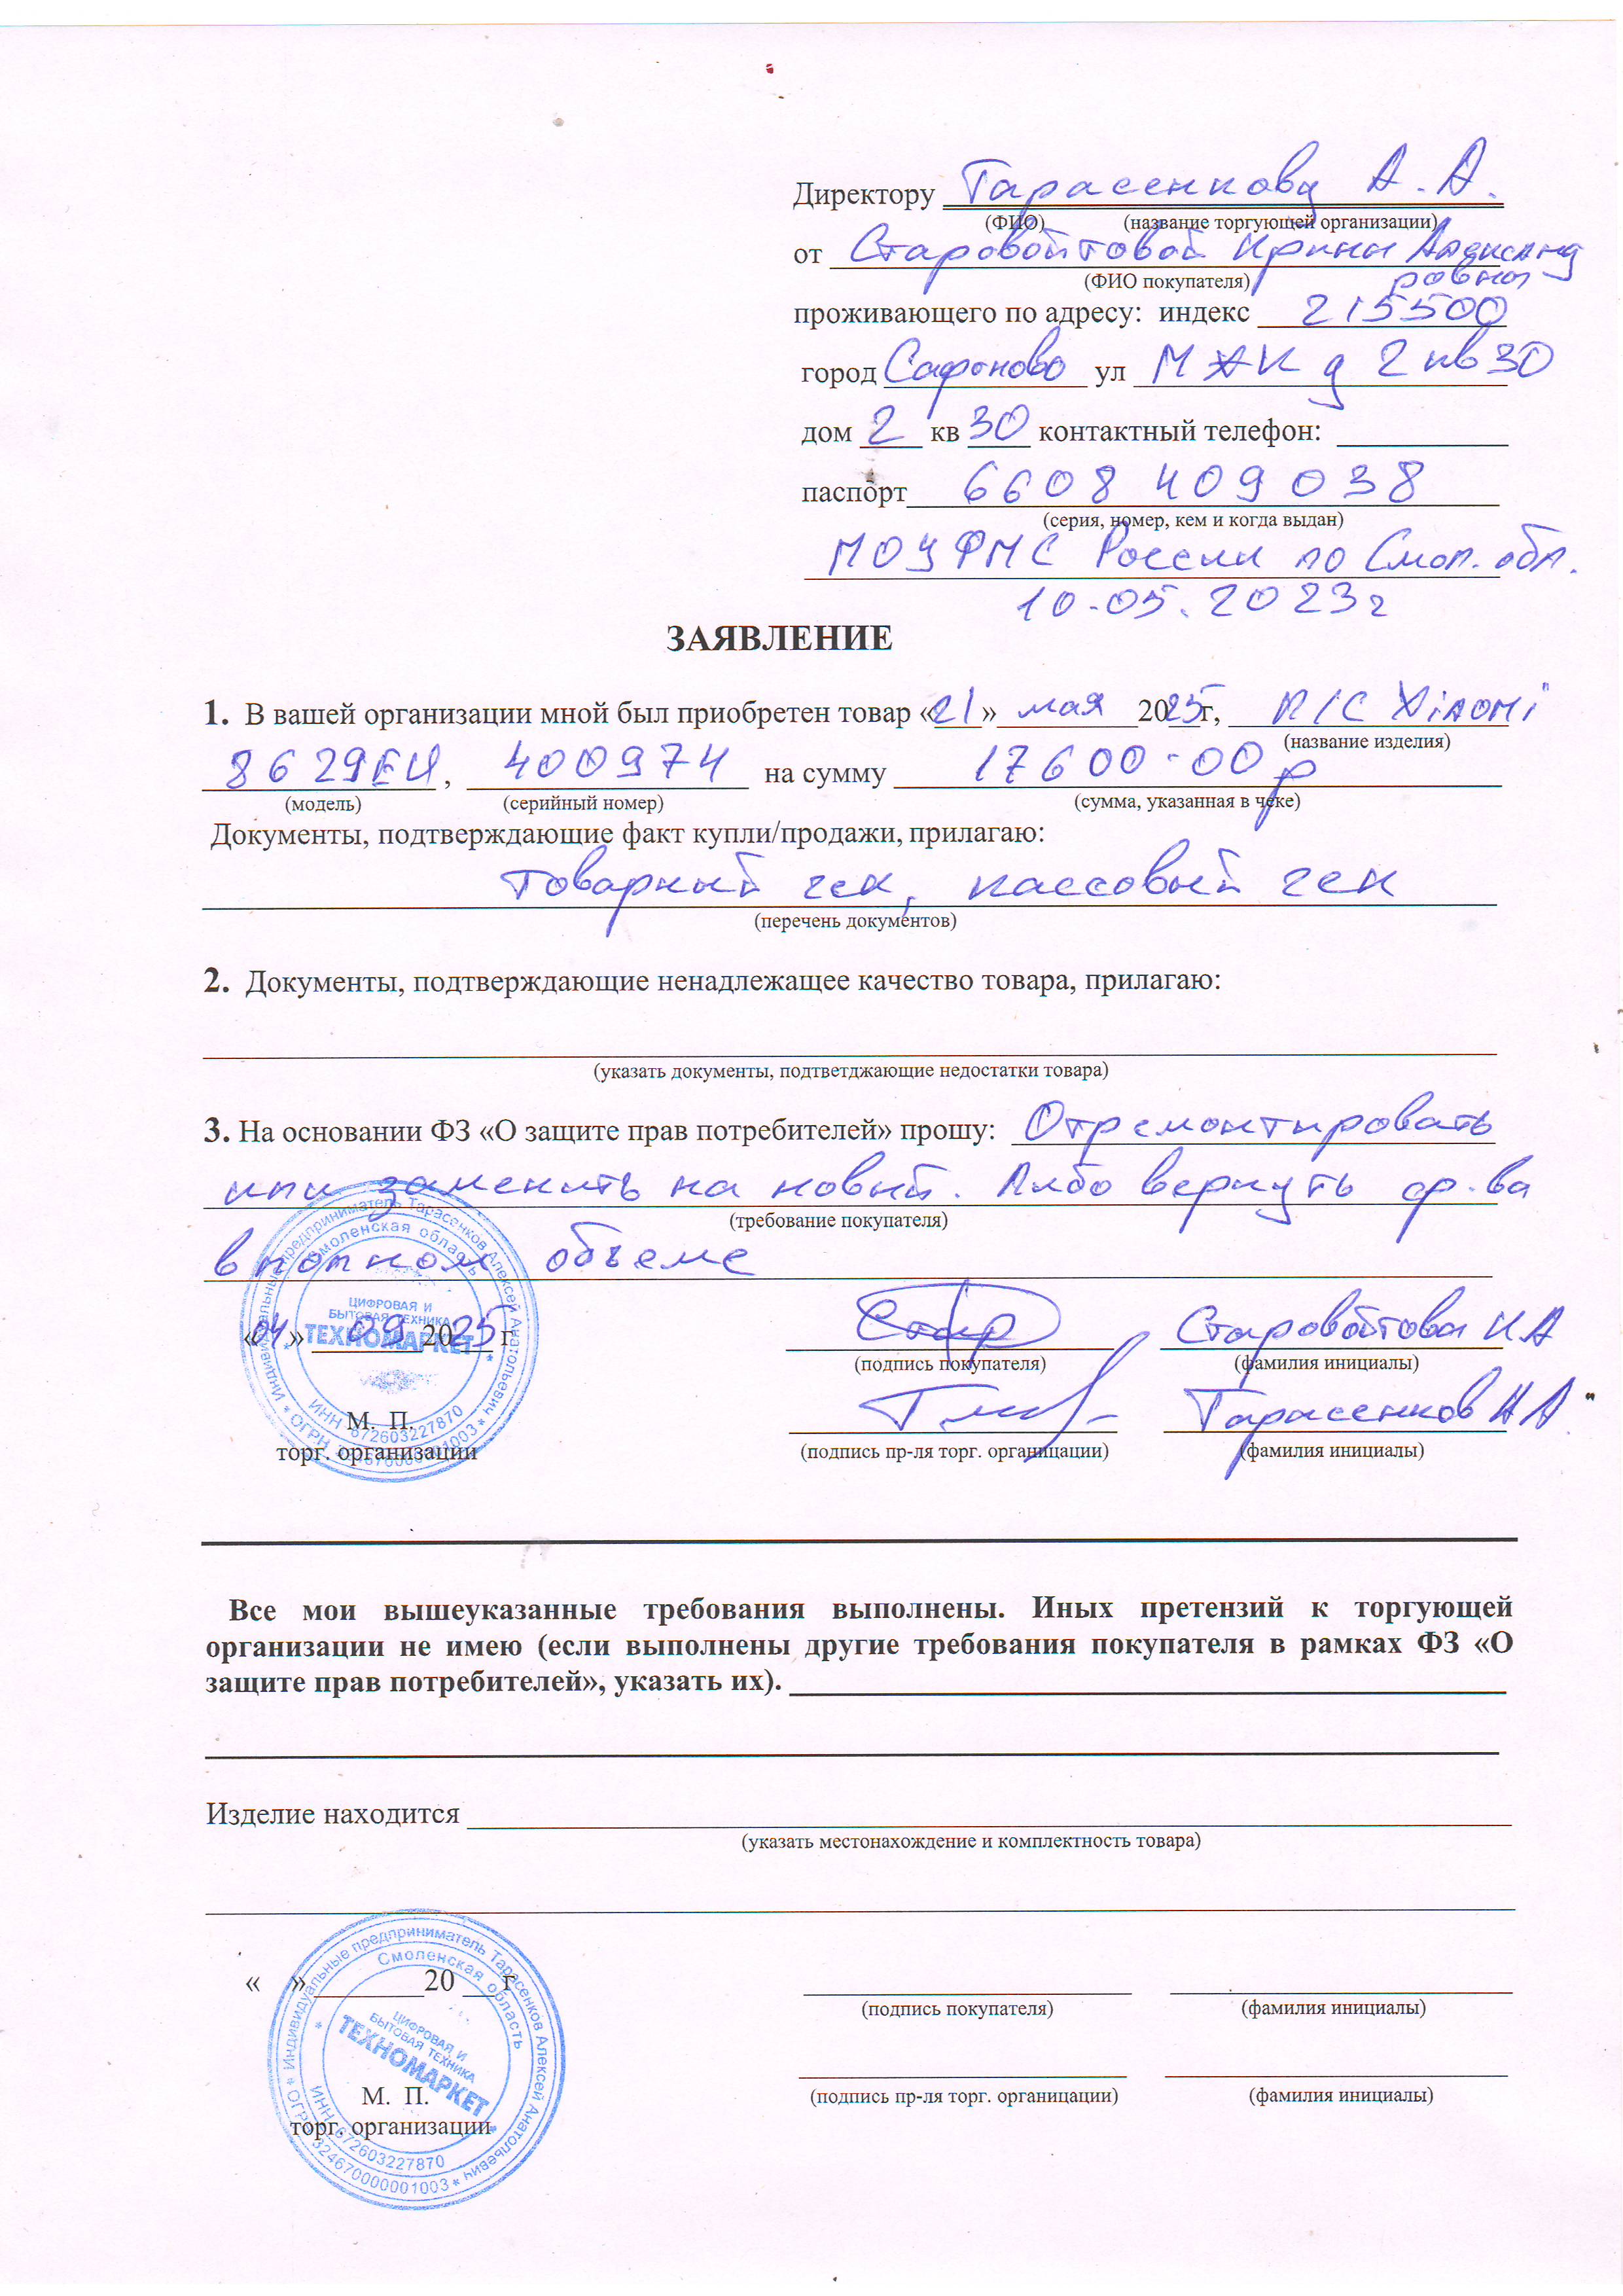 Директору Тарасенкову А.А.
(ФИО) (название торгующей организации)
от Старовойтовой Ирины Александ
ровны
(ФИО покупателя)
проживающего по адресу: индекс 215500
город Сафоново ул МЖК д 2 кв 30
дом 2 кв 30 контактный телефон:
паспорт 6608 409038
(серия, номер, кем и когда выдан)
МО УФМС России по Смол. обл.
10.05.2023г
ЗАЯВЛЕНИЕ
1. В вашей организации мной был приобретен товар «21» мая 2025 г, П/С Xiaomi
(название изделия)
8629EU, 400974 на сумму 17600-00 р
(модель) (серийный номер) (сумма, указанная в чеке)
Документы, подтверждающие факт купли/продажи, прилагаю:
товарный чек, кассовый чек
(перечень документов)
2. Документы, подтверждающие ненадлежащее качество товара, прилагаю:
(указать документы, подтветджающие недостатки товара)
3. На основании ФЗ «О защите прав потребителей» прошу: Отремонтировать
или заменить на новый. Либо вернуть ср.ва
(требование покупателя)
в полном объеме
«04» 09 2025 г
(подпись покупателя) Старовойтова И А
(фамилия инициалы)
Тарасенков А А
(подпись пр-ля торг. органицации) (фамилия инициалы)
М. П.
торг. организации
Индивидуальные предприниматель Тарасенков Алексей Анатольевич * ОГРН
Смоленская область
ЦИФРОВАЯ И
БЫТОВАЯ ТЕХНИКА
ТЕХНОМАРКЕТ
ИНН 672603227870
Все мои вышеуказанные требования выполнены. Иных претензий к торгующей
организации не имею (если выполнены другие требования покупателя в рамках ФЗ «О
защите прав потребителей», указать их).
Изделие находится
(указать местонахождение и комплектность товара)
« » 20 г
(подпись покупателя) (фамилия инициалы)
(подпись пр-ля торг. органицации) (фамилия инициалы)
М. П.
торг. организации
Индивидуальные предприниматель Тарасенков Алексей Анатольевич * ОГРН 324670000001003 *
Смоленская область
ЦИФРОВАЯ И
БЫТОВАЯ ТЕХНИКА
ТЕХНОМАРКЕТ
ИНН 672603227870